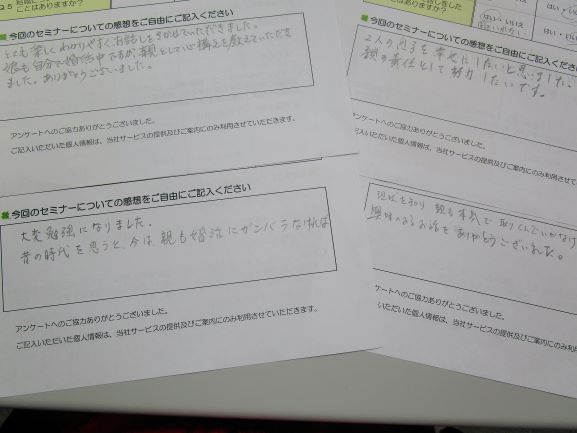 Q5
ことはありますか?
今回のセミナーについての感想をご自由にご記入ください
とても楽しくわかりやすくお話しをきかせていただきました。
娘も自分で婚活中ですが、親として心構えを教えていただき
ました。ありがとうございました。
アンケートへのご協力ありがとうございました。
ご記入いただいた個人情報は、当社サービスの提供及びご案内にのみ利用させていただきます。
今回のセミナーについての感想をご自由にご記入ください
大変勉強になりました。
昔の時代を思うと、今は、親も婚活にガンバラなければ
アンケートへのご協力ありがとうございました。
ご記入いただいた個人情報は、当社サービスの提供及びご案内にのみ利用させていただきます。
ことはありますか?
はい・いいえ
はい・いいえ
今回のセミナーについての感想をご自由にご記入くださ
2人の息子を幸せにしたいと思いました。
親の責任として努力したいです。
アンケートへのご協力ありがとうございました。
ご記入いただいた個人情報は、当社サービスの提供及びご案内にのみ利用
現状を知り 親も本気で取りくんでいかなけ
興味のあるお話を ありがとうございました。
ケートへのご協力ありがとうございました。
いただいた個人情報は、当社サービスの提供及びご案内にのみ利用